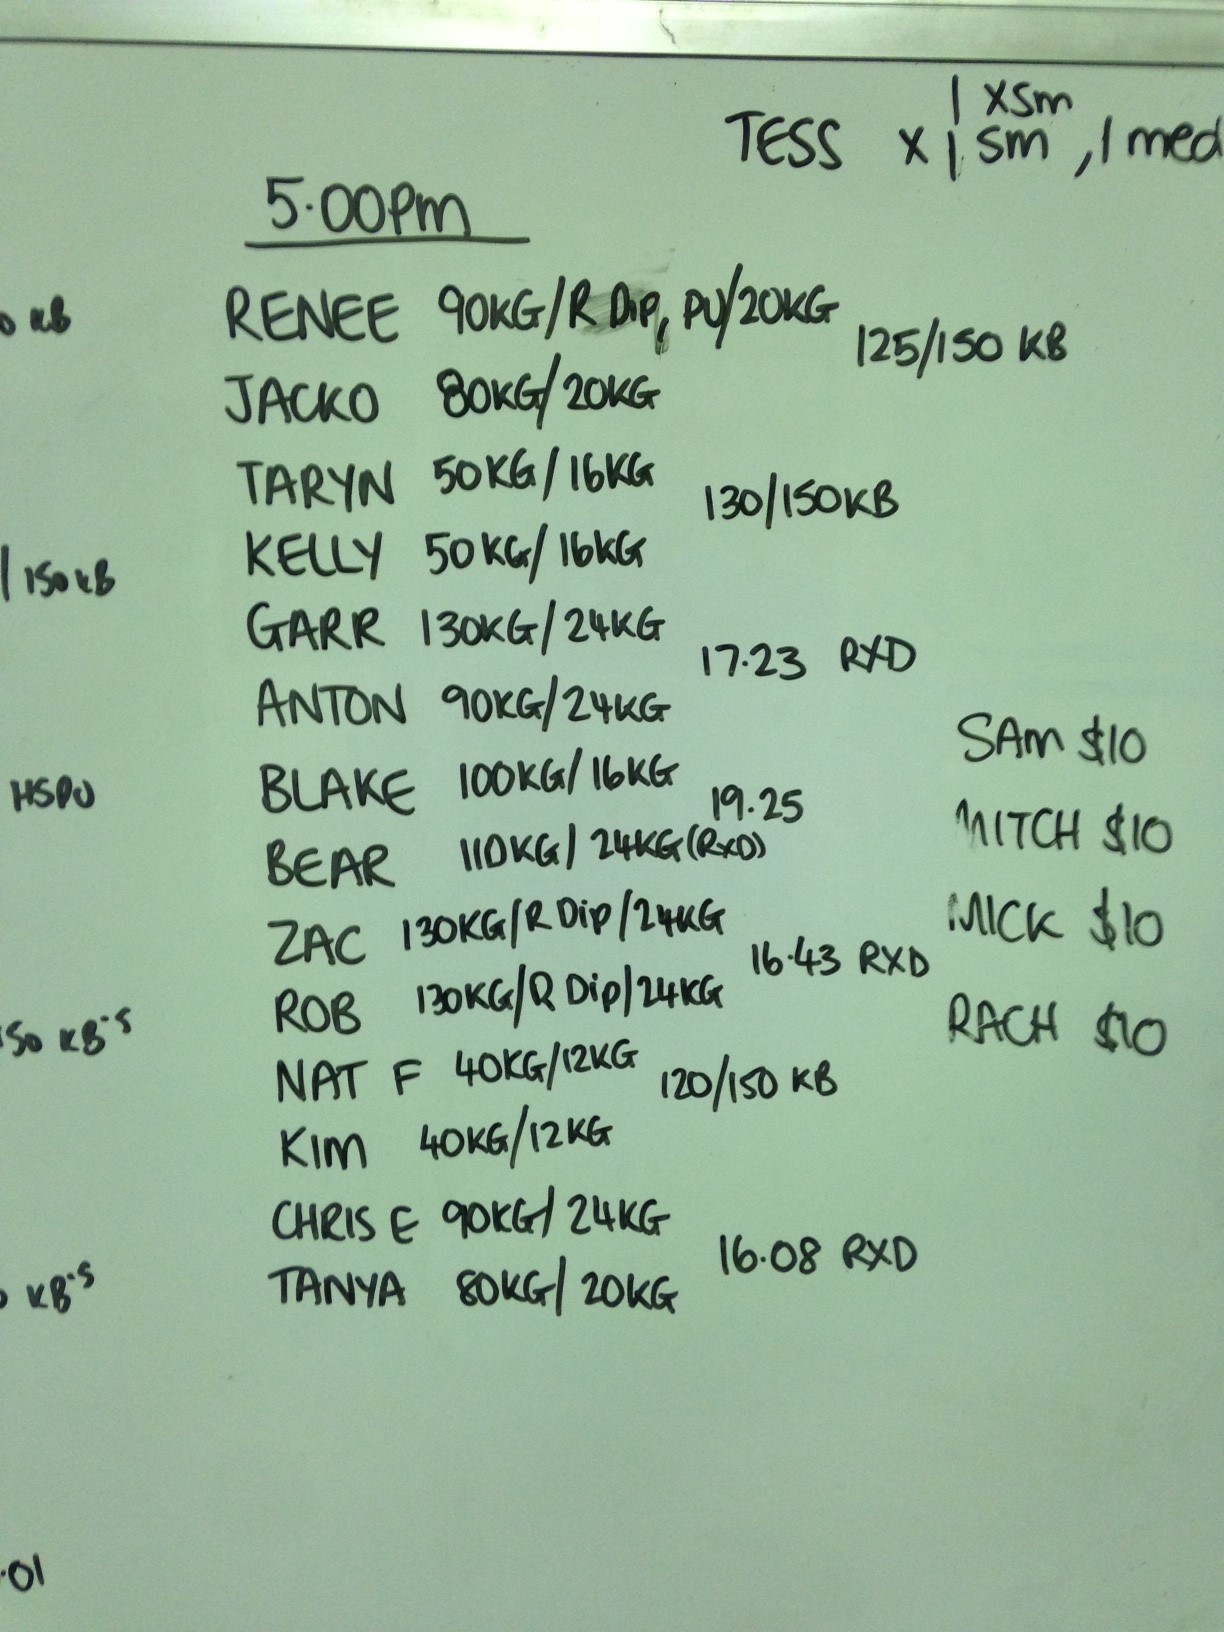 1 XSm
TESS x 1 Sm, 1 med
5.00pm
RENEE 90KG/R Dip, PU/20KG
125/150 KB
JACKO 80KG/20KG
TARYN 50KG/16KG
130/150KB
KELLY 50KG/16KG
GARR 130KG/24KG
17.23 RXD
ANTON 90KG/24KG
BLAKE 100KG/16KG
19.25
BEAR 110KG/24KG(RXD)
ZAC 130KG/R Dip/24KG
16.43 RXD
ROB 130KG/R Dip/24KG
NAT F 40KG/12KG
120/150 KB
KIM 40KG/12KG
CHRIS E 90KG/24KG
16.08 RXD
TANYA 80KG/20KG
SAM $10
MITCH $10
MICK $10
RACH $10
0 KB
/150KB
HSPU
50 KB'S
KB'S
.01